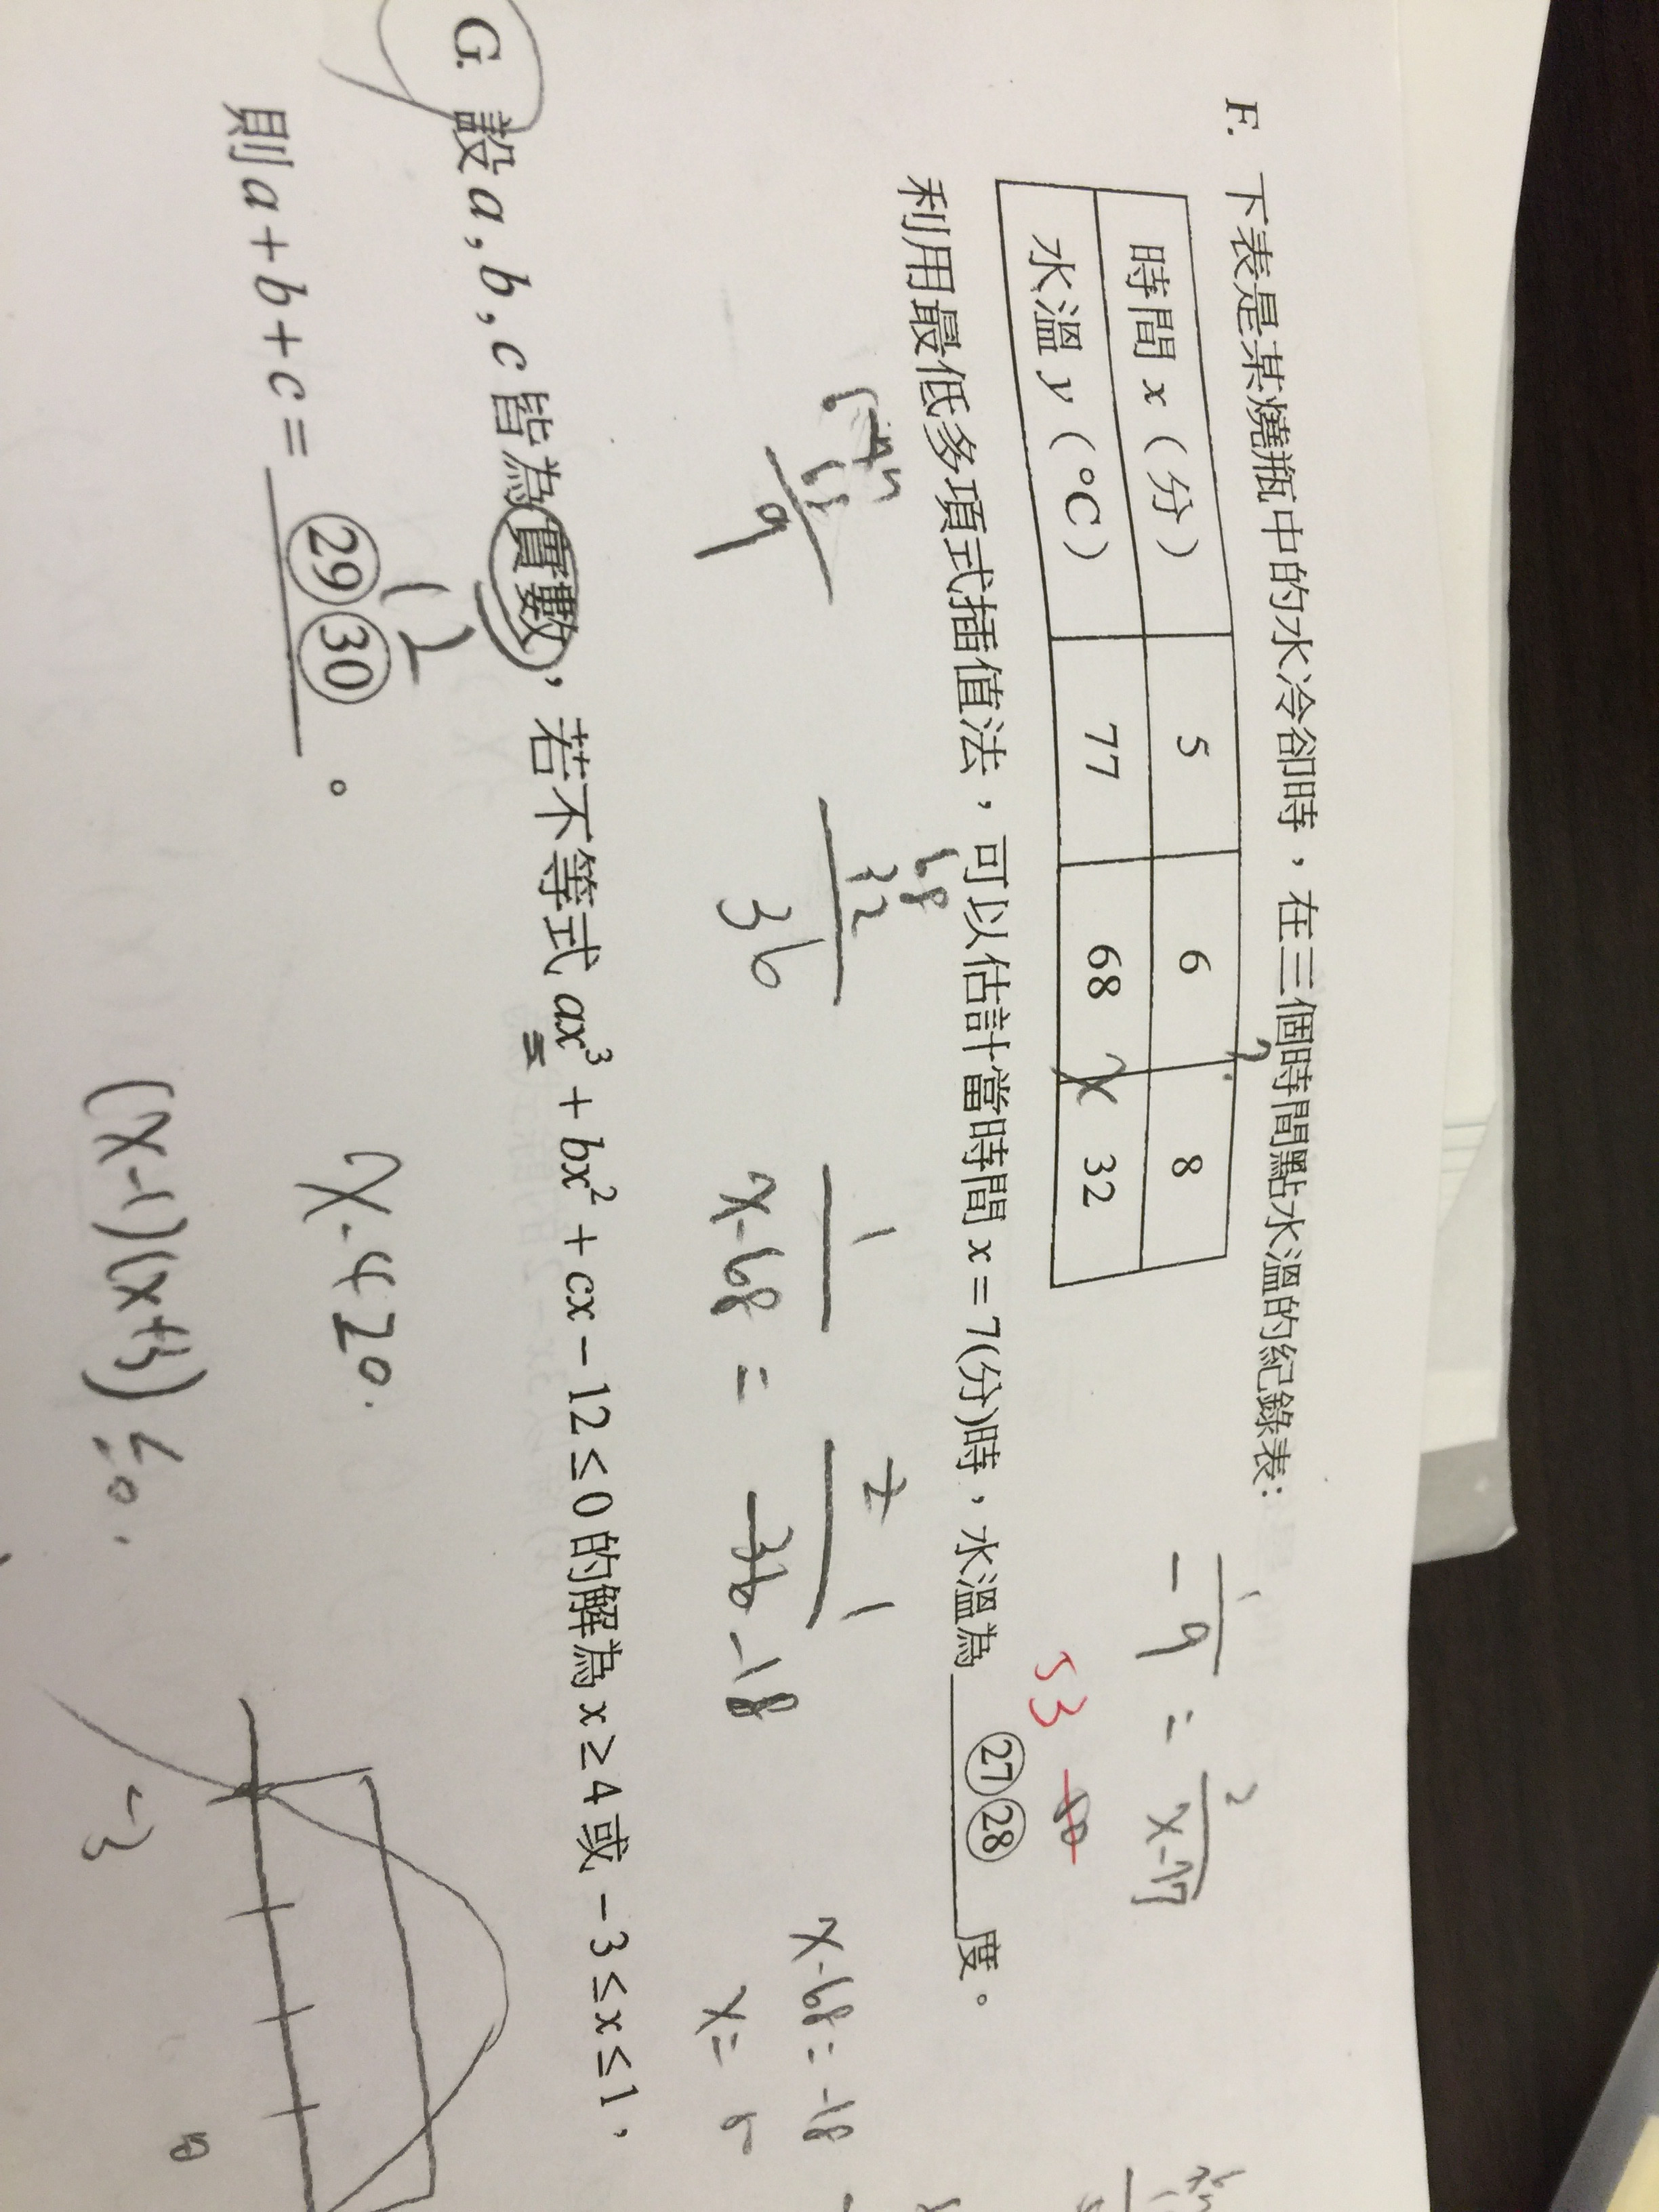 F. 下表是某燒瓶中的水冷卻時，在三個時間點水溫的紀錄表：
時間 x（分） 5 6 8
水溫 y（°C） 77 68 32
?
x
1/-9 = 2/x-77
利用最低多項式插值法，可以估計當時間 x = 7(分)時，水溫為 ㉗㉘ 度。
53
68
32
36
9
1/x-68 =
-18
x-68 = -18
x =
G. 設 a, b, c 皆為實數，若不等式 ax³ + bx² + cx − 12 ≤ 0 的解為 x ≥ 4 或 −3 ≤ x ≤ 1，
則 a + b + c = ㉙㉚ 。
12
x-4≥0.
(x-1)(x+3) ≤0.
-3